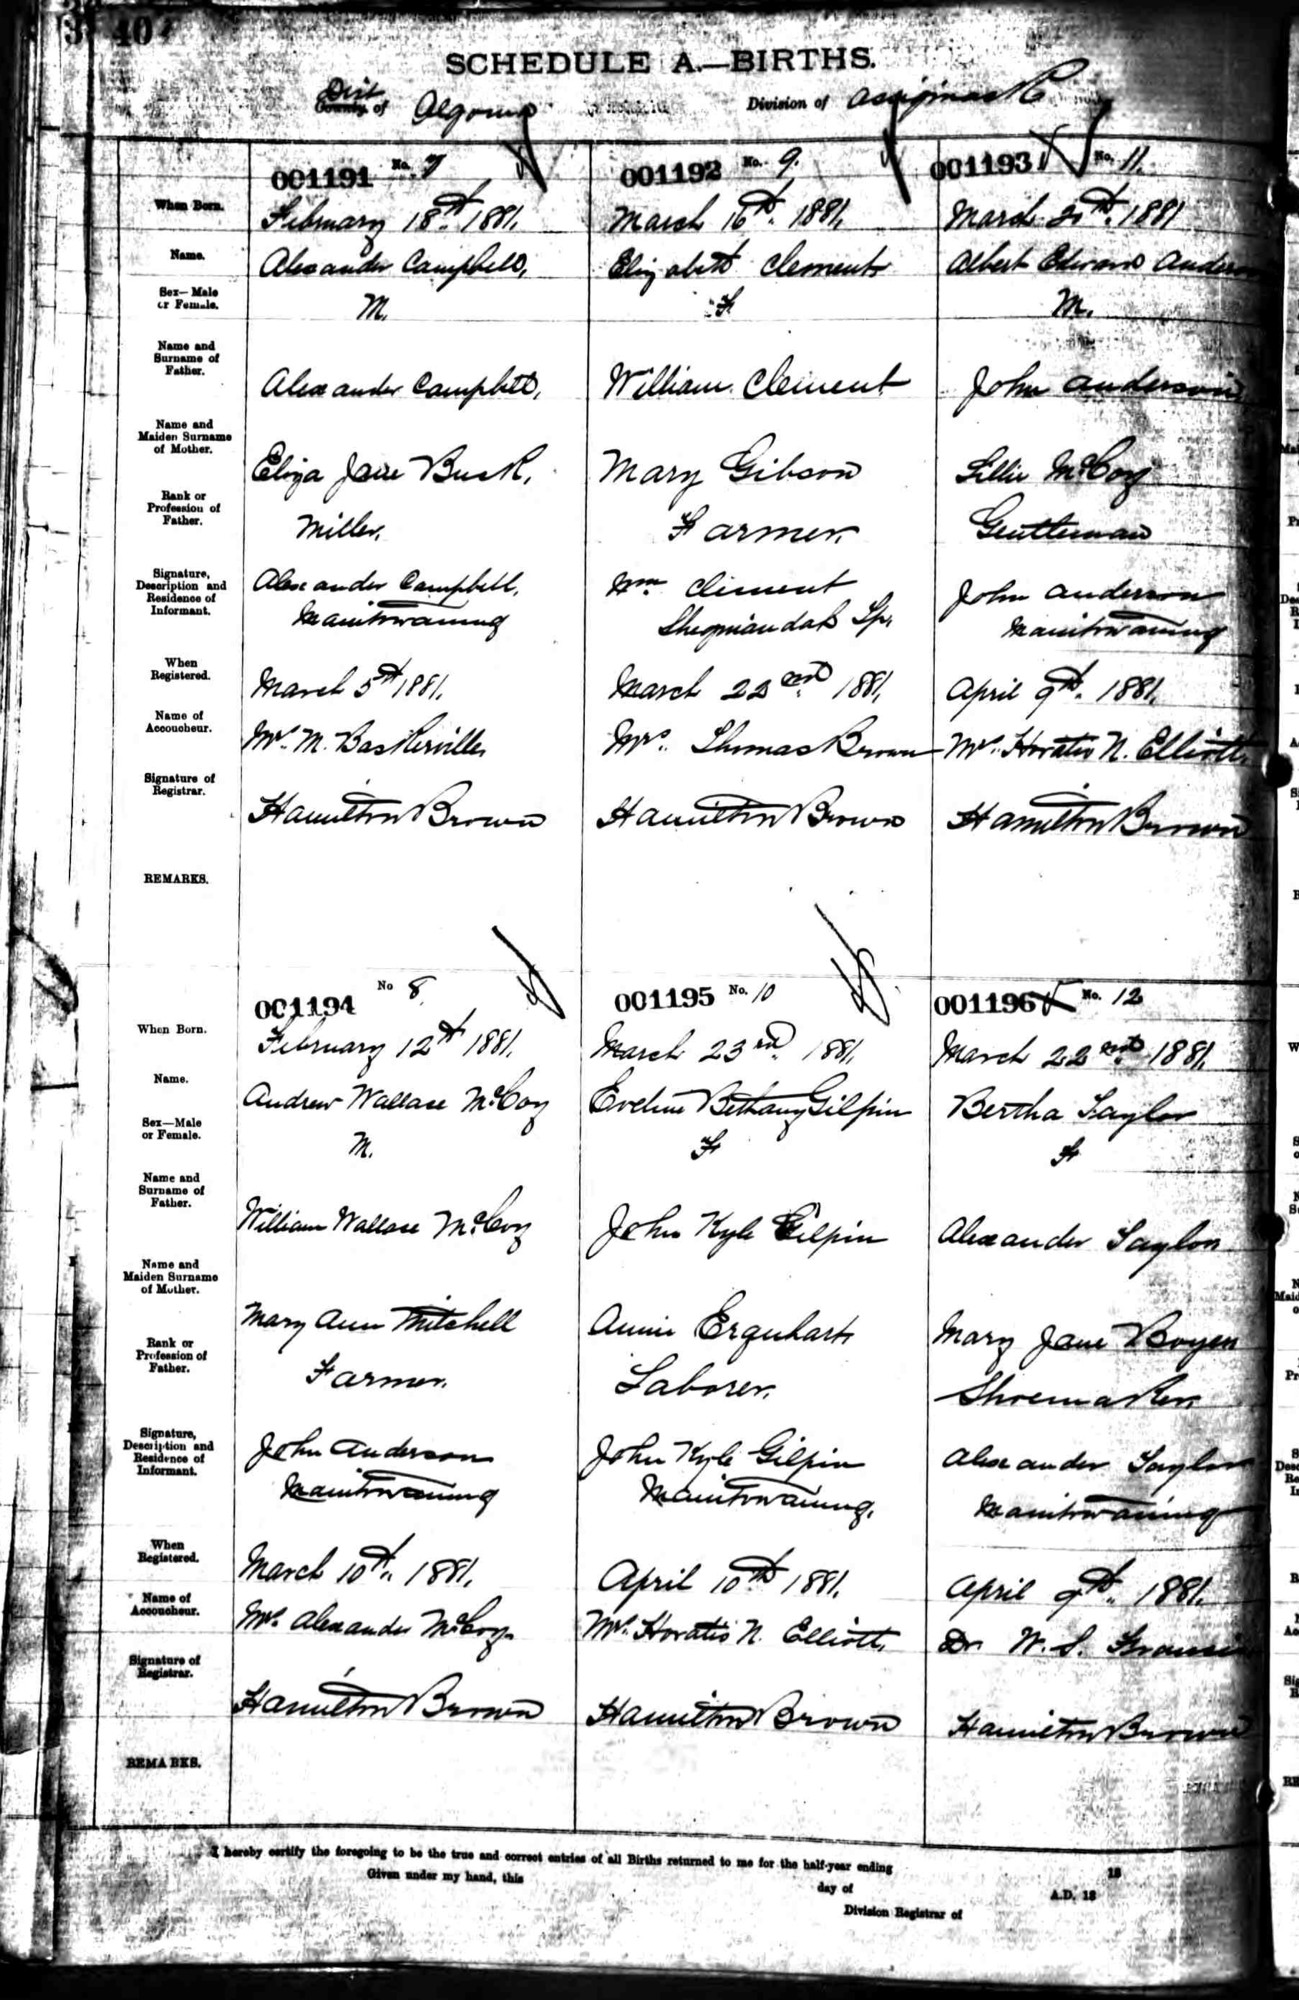 40
SCHEDULE A.—BIRTHS.
Dist
County of Algoma Division of
001191 No. 7 001192 No. 9. 001193 No. 11.
When Born. February 18th 1881. March 16th. 1881. March 20th. 1881
Name. Alexander Campbell, Elizabeth Clement Albert Edward Anderson
Sex—Male
or Female. M. F M.
Name and
Surname of
Father. Alexander Campbell, William Clement John Anderson
Name and
Maiden Surname
of Mother. Eliza Jane Busk, Mary Gibson Lillie McCoy
Rank or
Profession of
Father. Miller, Farmer, Gentleman
Signature,
Description and
Residence of
Informant. Alexander Campbell, Wm Clement John Anderson
Manitowaning Sheguiandah Tp. Manitowaning
When
Registered. March 5th 1881. March 22nd 1881, April 9th. 1881.
Name of
Accoucheur. Mrs. M. Baskerville, Mrs. Thomas Brown Mrs. Horatio N. Elliott,
Signature of
Registrar. Hamilton Brown Hamilton Brown Hamilton Brown
REMARKS.
001194 No 8 001195 No. 10 001196 No. 12
When Born. February 12th 1881, March 23rd. 1881, March 22nd 1881,
Name. Andrew Wallace McCoy Eveline Bethany Gilpin Bertha Taylor
Sex—Male
or Female. M. F F
Name and
Surname of
Father. William Wallace McCoy John Kyle Gilpin Alexander Taylor
Name and
Maiden Surname
of Mother. Mary Ann Mitchell Annie Erquhart Mary Jane Boyer
Rank or
Profession of
Father. Farmer. Laborer, Shoemaker,
Signature,
Description and
Residence of
Informant. John Anderson John Kyle Gilpin Alexander Taylor
Manitowaning Manitowaning, Manitowaning
When
Registered. March 10th. 1881. April 10th 1881. April 9th. 1881.
Name of
Accoucheur. Mrs. Alexander McCoy Mrs. Horatio N. Elliott, Dr W. S.
Signature of
Registrar. Hamilton Brown Hamilton Brown Hamilton Brown
REMARKS.
I hereby certify the foregoing to be the true and correct entries of all Births returned to me for the half-year ending 18
Given under my hand, this day of A.D. 18
Division Registrar of